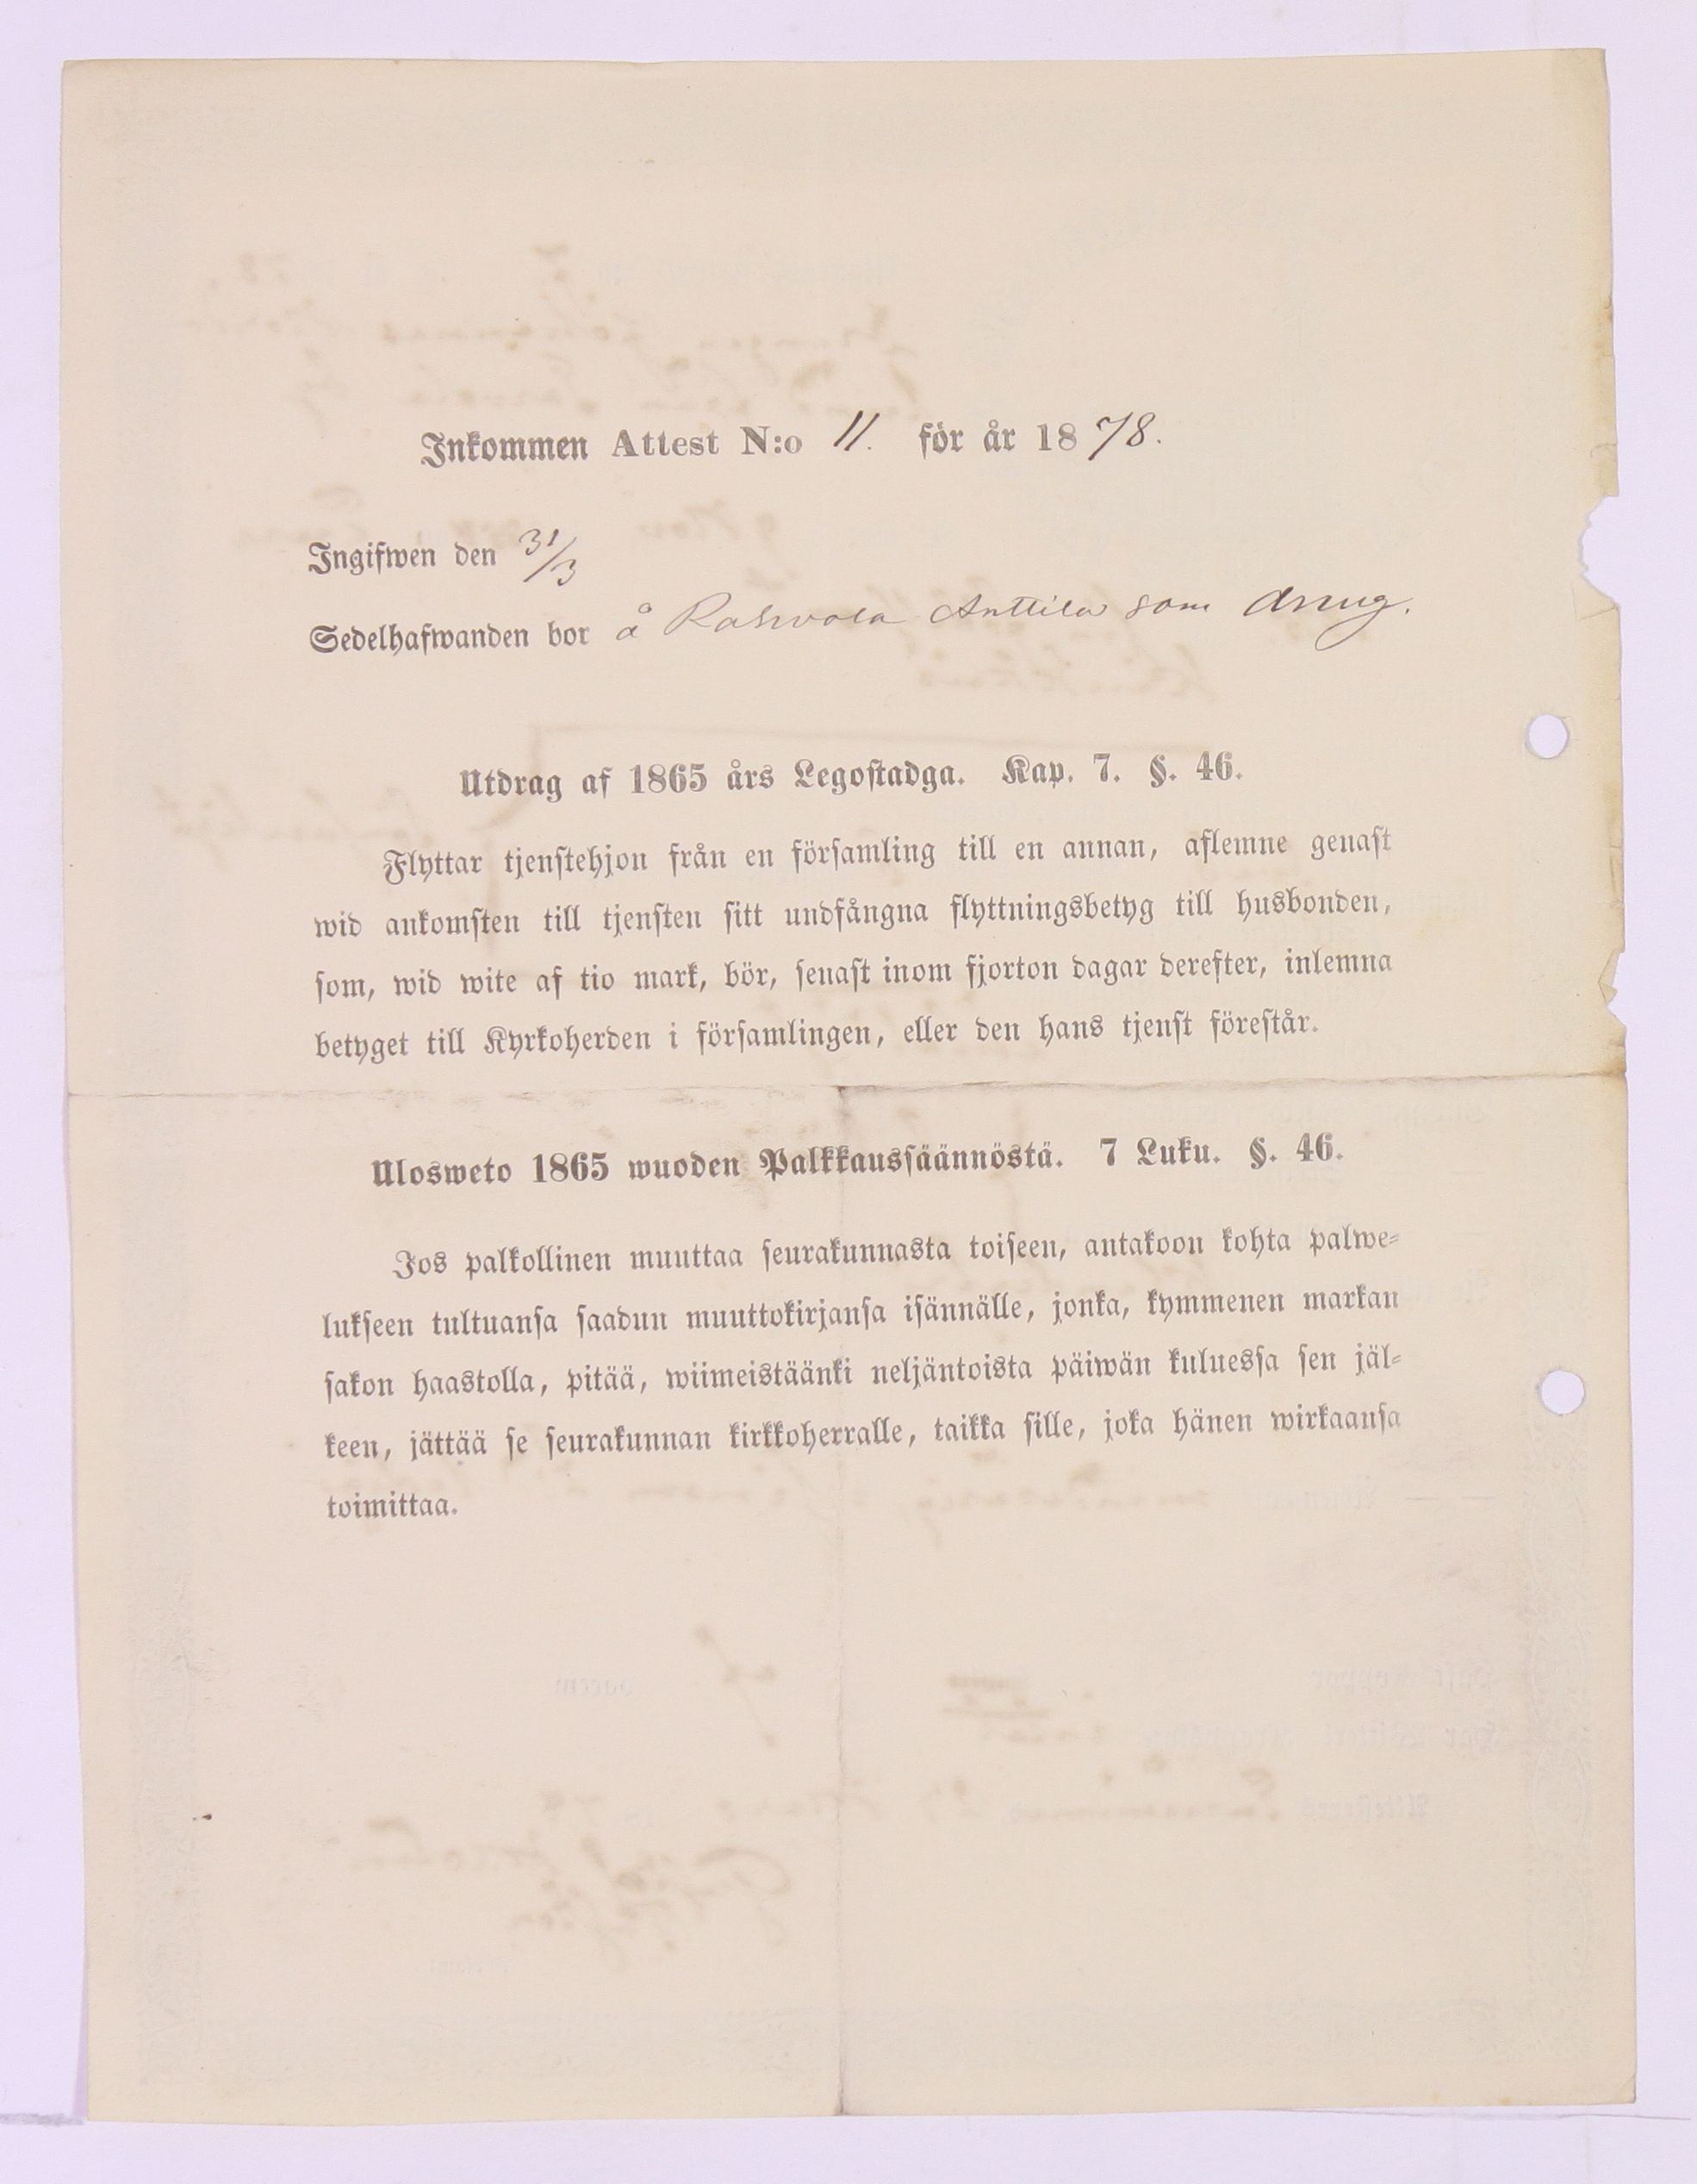 Inkommen Attest N:o 11. för år 1878.
Ingifwen den 31/3
Sedelhafwanden bor å Rahvola Anttila som dräng.
Utdrag af 1865 års Legostadga. Kap. 7. §. 46.
Flyttar tjenstehjon från en församling till en annan, aflemne genast
wid ankomsten till tjensten sitt undfångna flyttningsbetyg till husbonden,
som, wid wite af tio mark, bör, senast inom fjorton dagar derefter, inlemna
betyget till Kyrkoherden i församlingen, eller den hans tjenst förestår.
Ulosweto 1865 wuoden Palkkaussäännöstä. 7 Luku. §. 46.
Jos palkollinen muuttaa seurakunnasta toiseen, antakoon kohta palwe-
lukseen tultuansa saadun muuttokirjansa isännälle, jonka, kymmenen markan
sakon haastolla, pitää, wiimeistäänki neljäntoista päiwän kuluessa sen jäl-
keen, jättää se seurakunnan kirkkoherralle, taikka sille, joka hänen wirkaansa
toimittaa.